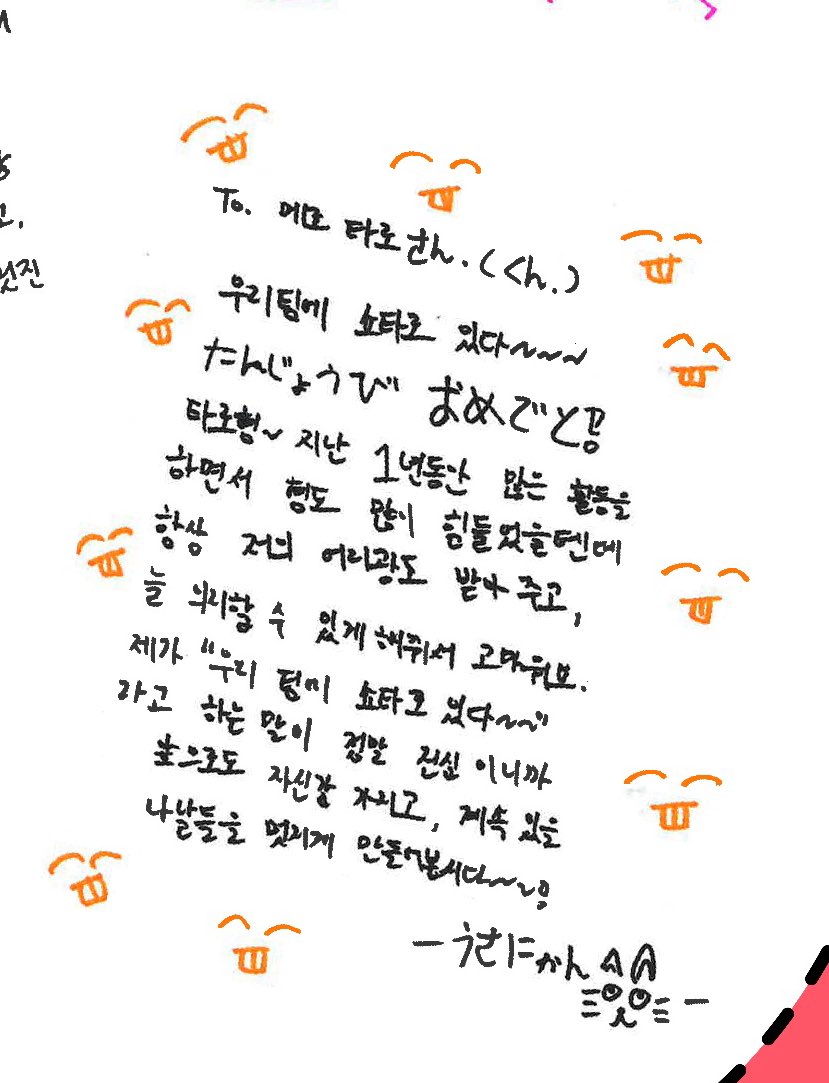 To. 메모 타로 さん. (くん.)
우리팀에 쇼타로 있다~~~
たんじょうび おめでと!
타로형~ 지난 1년동안 많은 활동을
하면서 형도 많이 힘들었을텐데
항상 저의 어리광도 받아 주고,
늘 의리할 수 있게 해줘서 고마워요.
제가 "우리 팀에 쇼타로 있다~~"
라고 하는 말이 정말 진심 이니까
앞으로도 자신감 가지고, 계속 있을
나날들을 멋지게 만들어봅시다~~!
멋진